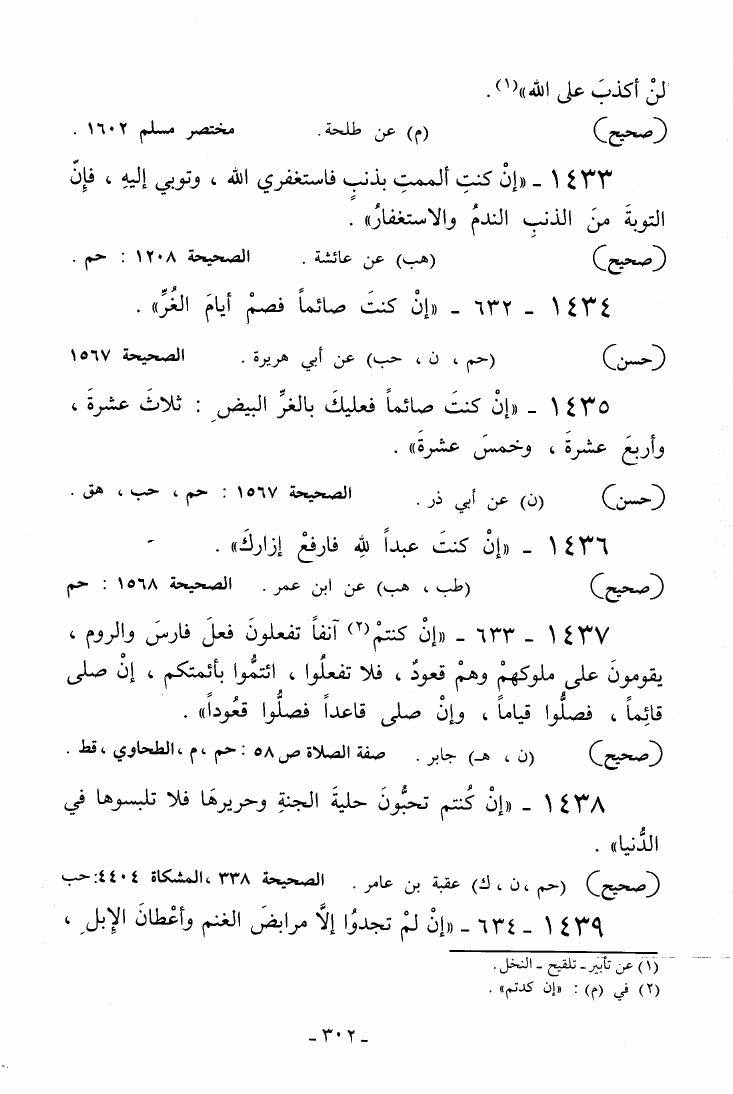 لنْ أكذبَ على الله»(١).
(صحيح) (م) عن طلحة. مختصر مسلم ١٦٠٢ .
١٤٣٣ - «إنْ كنتِ ألممتِ بذنبٍ فاستغفري الله ، وتوبي إليهِ ، فإنّ
التوبةَ منَ الذنبِ الندمُ والاستغفارُ» .
(صحيح) (هب) عن عائشة . الصحيحة ١٢٠٨ : حم .
١٤٣٤ - ٦٣٢ - «إنْ كنتَ صائماً فصمْ أيامَ الغُرِّ» .
(حسن) (حم ، ن ، حب) عن أبي هريرة . الصحيحة ١٥٦٧
١٤٣٥ - «إنْ كنتَ صائماً فعليكَ بالغرِّ البيضِ : ثلاثَ عشرةَ ،
وأربعَ عشرةَ ، وخمسَ عشرةَ» .
(حسن) (ن) عن أبي ذر . الصحيحة ١٥٦٧ : حم ، حب ، هق .
١٤٣٦ - «إنْ كنتَ عبداً للهِ فارفعْ إزاركَ» .
(صحيح) (طب ، هب) عن ابن عمر . الصحيحة ١٥٦٨ : حم
١٤٣٧ - ٦٣٣ - «إنْ كنتمْ(٢) آنفاً تفعلونَ فعلَ فارسَ والروم ،
يقومونَ على ملوكهمْ وهمْ قعودٌ ، فلا تفعلُوا ، ائتمُّوا بأئمتكم ، إنْ صلى
قائِماً ، فصلُّوا قياماً ، وإنْ صلى قاعداً فصلُّوا قعُوداً» .
(صحيح) (ن ، هـ) جابر . صفة الصلاة ص ٥٨ : حم ، م ، الطحاوي ، قط .
١٤٣٨ - «إنْ كُنتم تحبُّونَ حليةَ الجنةِ وحريرهَا فلا تلبسوها في
الدُّنيا» .
(صحيح) (حم ، ن ، ك) عقبة بن عامر . الصحيحة ٣٣٨ ، المشكاة ٤٤٠٤: حب
١٤٣٩ - ٦٣٤ - «إنْ لمْ تجدُوا إلَّا مرابضَ الغنم وأعْطانَ الإبلِ ،
(١) عن تأبير - تلقيح - النخل.
(٢) في (م) : «إن كدتم» .
- ٣٠٢ -